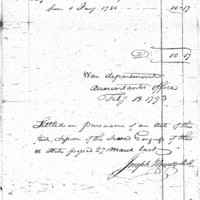 1786 10-17
10 17
War department
Accountants Office
Feby 13 1793
Settled in pursuance of an act of the
Session of the Second Congress of the
U States passed 27 March last
Joseph Howell